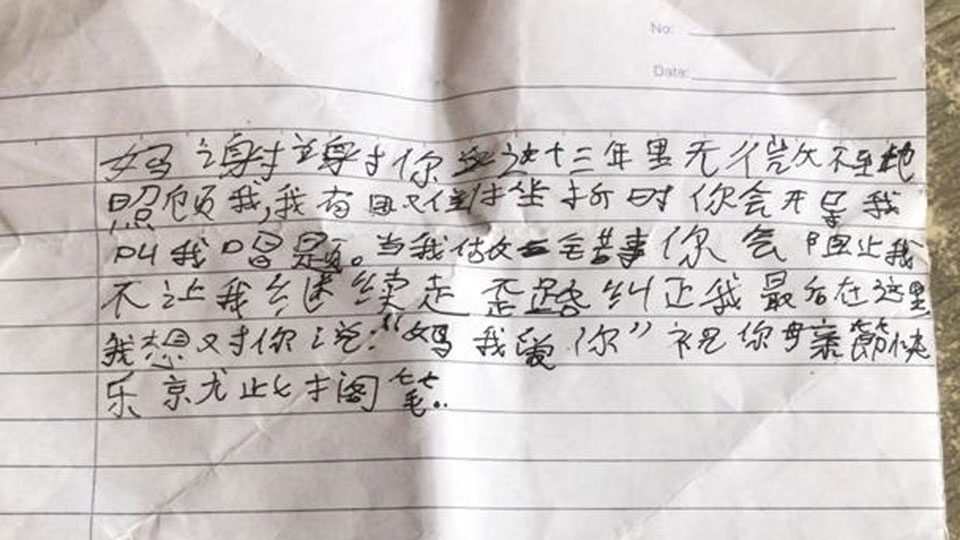 No:
Date:
妈 谢谢你 这十二年里无微不至地
照顾我,我有困难挫折时 你会开导我
叫我 当我做 事你会阻止我
不让我继续走 歪路 纠正我 最后在这里
我想对你说:“妈 我爱你” 祝你母亲节快
乐 就此 搁笔..